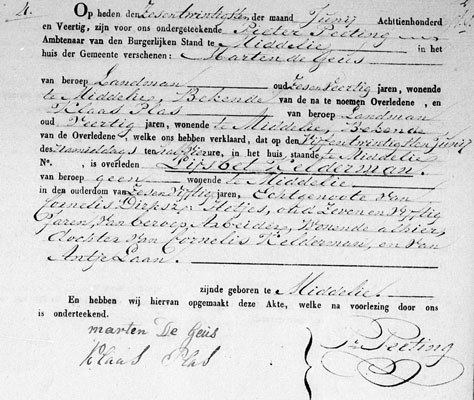 4.
Op heden den Zesentwintigsten der maand Junij Achttienhonderd
en Veertig, zijn voor ons ondergeteekende Pieter Peeting
Ambtenaar van den Burgerlijken Stand te Middelie in het
huis der Gemeente verschenen: Marten de Geus
van beroep Landman oud Zesen Veertig jaren, wonende
te Middelie, Bekende van de na te noemen Overledene, en
Klaas Plas van beroep Landman
oud Veertig jaren, wonende te Middelie, Bekende
van de Overledene, welke ons hebben verklaard, dat op den Vijfentwintigsten Junij
des namiddags ten half ure, in het huis staande te Middelie
No. , is overleden Lijsbet Kelderman.
van beroep geen wonende te Middelie
in den ouderdom van Zesen Vijftig jaren, Echtgenoote van
Cornelis Dirksz: Hotjes, oud Zeven en Vijftig
Jaren, van beroep Arbeider, Wonende alhier,
dochter van Cornelis Kelderman, en van
Antje Laan.
zijnde geboren te Middelie.
En hebben wij hiervan opgemaakt deze Akte, welke na voorlezing door ons
is onderteekend.
marten De Geus
Klaas Plas
Pr Peeting